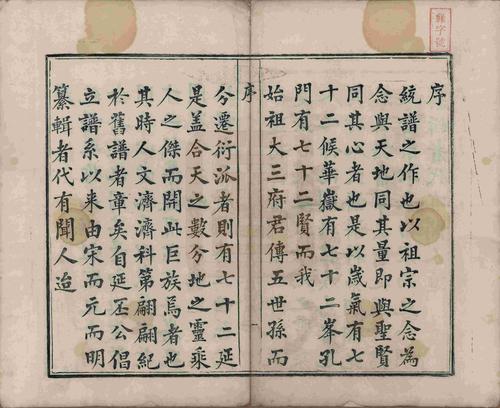 序
統譜之作也以祖宗之念為
念與天地同其量即與聖賢
同其心者也是以歲氣有七
十二候華嶽有七十二峯孔
門有七十二賢而我
始祖大三府君傳五世孫而
序
分遷衍派者則有七十二延
是盖合天之數分地之靈乘
人之傑而開此巨族焉者也
其時人文濟濟科第翩翩紀
於舊譜者章矣自延丕公倡
立譜系以来由宋而元而明
纂輯者代有聞人迨